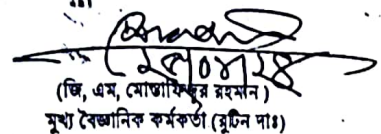 ২৫/০৪/২৪
(জি, এম, মোস্তাফিজুর রহমান)
মুখ্য বৈজ্ঞানিক কর্মকর্তা (রুটিন দাঃ)